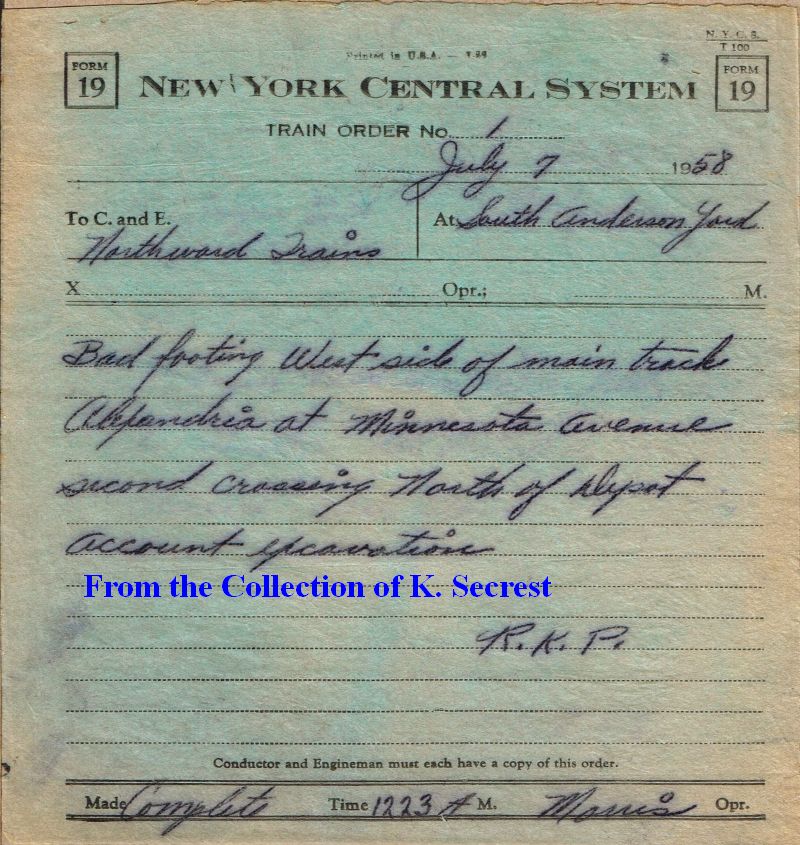 N. Y. C. S.
T 100
Printed in U.S.A.
FORM
19
NEW YORK CENTRAL SYSTEM
FORM
19
TRAIN ORDER No. 1
July 7 1958
To C. and E. At South Anderson Yard
Northward Trains
X Opr.; M.
Bad footing West side of main track
Alexandria at Minnesota Avenue
second crossing North of depot
account excavation
From the Collection of K. Secrest
R.K.P.
Conductor and Engineman must each have a copy of this order.
Made Complete Time 1223 A M. Morris Opr.